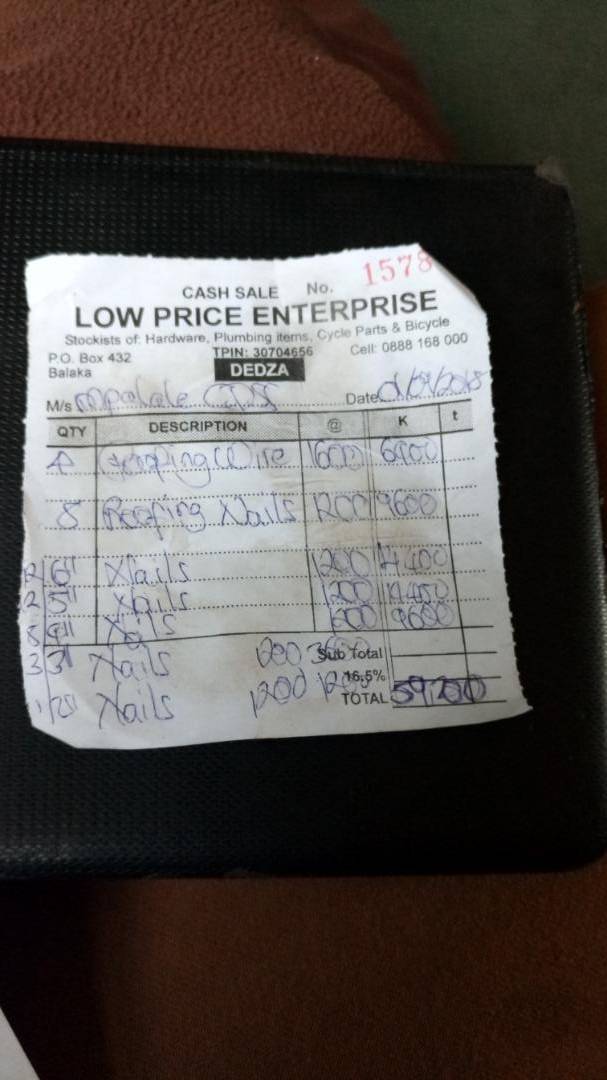 CASH SALE No. 1578
LOW PRICE ENTERPRISE
Stockists of: Hardware, Plumbing items, Cycle Parts & Bicycle
P.O. Box 432 TPIN: 30704656 Cell: 0888 168 000
Balaka DEDZA
M/s Date
QTY DESCRIPTION @ K t
4 Wire 1600 6400
8 Roofing Nails 1200 9600
12 6" Nails 1200 14400
12 5" Nails 1200 14400
8 4" Nails 9600
3 3" Nails 1200 3600 Sub Total
1 Nails 1200 1200 16.5%
TOTAL 59200